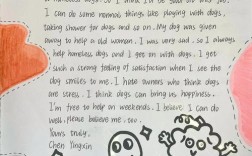 I can do some normal things like playing with dogs,
taking shower for dogs and so on. My dog was given
away to help a old woman. I was very sad. so I always
help homeless dogs and I get on with dogs. I get
such a strong feeling of satisfaction when I see the
dog smiles to me. I hate owners who think dogs
are stress. I think dogs can bring us happiness.
I'm free to help on weekends. I believe I can do
well, please believe me, too.
Yours truly,
Chen Yingxin